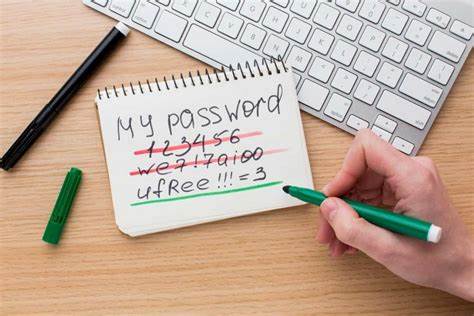 My password
123456
we7!7a100
ufRee!!!=3